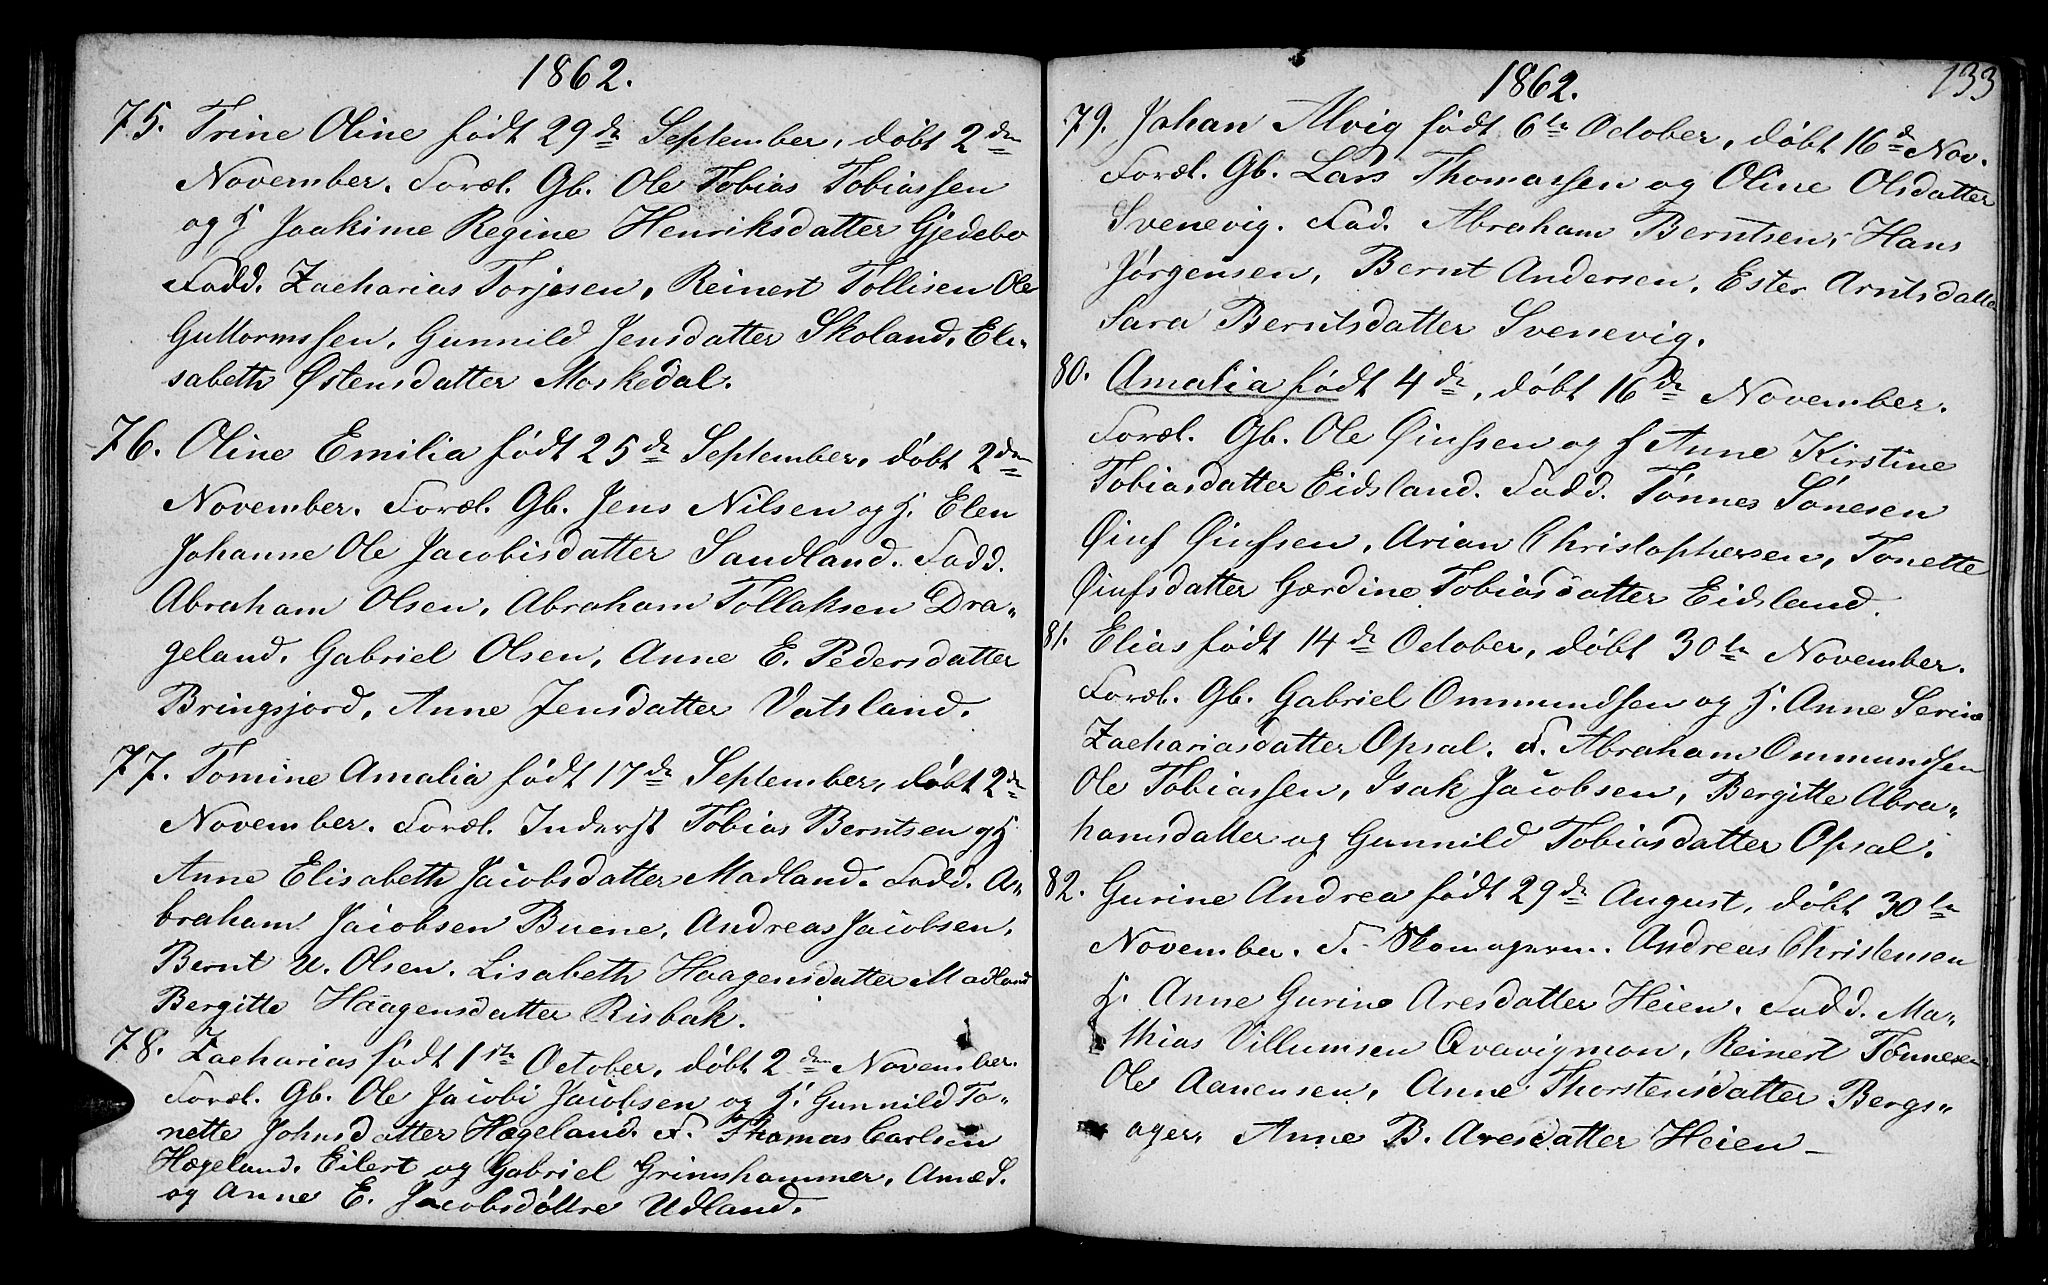 1862.
75. Trine Oline født 29de September, døbt 2den
November. Foræl. Gb. Ole Tobias Tobiassen
og H. Joakime Regine Henriksdatter Gjedebo
Fadd. Zacharias Torjesen, Reinert Tollisen Ole
Guttormssen, Gunnild Jensdatter Skoland, Eli-
sabeth Østensdatter Moskedal.
76. Oline Emilia født 25de September, døbt 2den
November. Foræl. Gb. Jens Nilsen og H. Elen
Johanne Ole Jacobisdatter Sandland. Fadd.
Abraham Olsen, Abraham Tollaksen Dra-
geland, Gabriel Olsen, Anne E. Pedersdatter
Bringsjord, Anne Jensdatter Vatsland.
77. Tomine Amalia født 17de September, døbt 2den
November. Foræl. Inderst Tobias Berntsen og H
Anne Elisabeth Jacobsdatter Madland. Fadd. A-
braham Jacobsen Buene, Andreas Jacobsen,
Bernt U. Olsen. Lisabeth Haagensdatter Madland
Bergitte Haagensdatter Risbak.
78. Zacharias født 1ste October, døbt 2den November.
Foræl. Gb. Ole Jacobi Jacobsen og H. Gunnild To-
nette Johnsdatter Hægeland. F. Thomas Carlsen
Hægeland, Eilert og Gabriel Grimshammer, Amæ S.
og Anne E. Jacobsdøttre Udland.
1862.
133
79. Johan Alvig født 6te October, døbt 16de Nov.
Foræl. Gb. Lars Thomassen og Oline Olsdatter
Svenevig. Fad. Abraham Berntsen, Hans
Jørgensen, Bernt Andersen, Ester Arntsdatter
Sara Berntsdatter Svenevig.
80. Amalia født 4de, døbt 16de November.
Foræl. Gb. Ole Øiufssen og H Anne Kirstine
Tobiasdatter Eidsland. Fadd. Tønnes Sønesen
Øiuf Øiufsen, Arian Christophersen, Tonette
Øiufsdatter Gærdine Tobiasdatter Eidsland.
81. Elias født 14de October, døbt 30te November.
Foræl. Gb. Gabriel Ommundsen og H. Anne Serine
Zachariasdatter Opsal. F. Abraham Ommundsen
Ole Tobiassen, Isak Jacobsen, Bergitte Abra-
hamsdatter og Gunnild Tobiasdatter Opsal.
82. Gurine Andrea født 29de August, døbt 30te
November. F. Skomagerm. Andreas Christensen
H. Anne Gurine Aresdatter Heien. Fadd. Ma-
thias Villumsen Qvavigmon, Reinert Tønnesen
Ole Aanensen, Anne Thorstensdatter Bergs-
ager, Anne B. Aresdatter Heien -